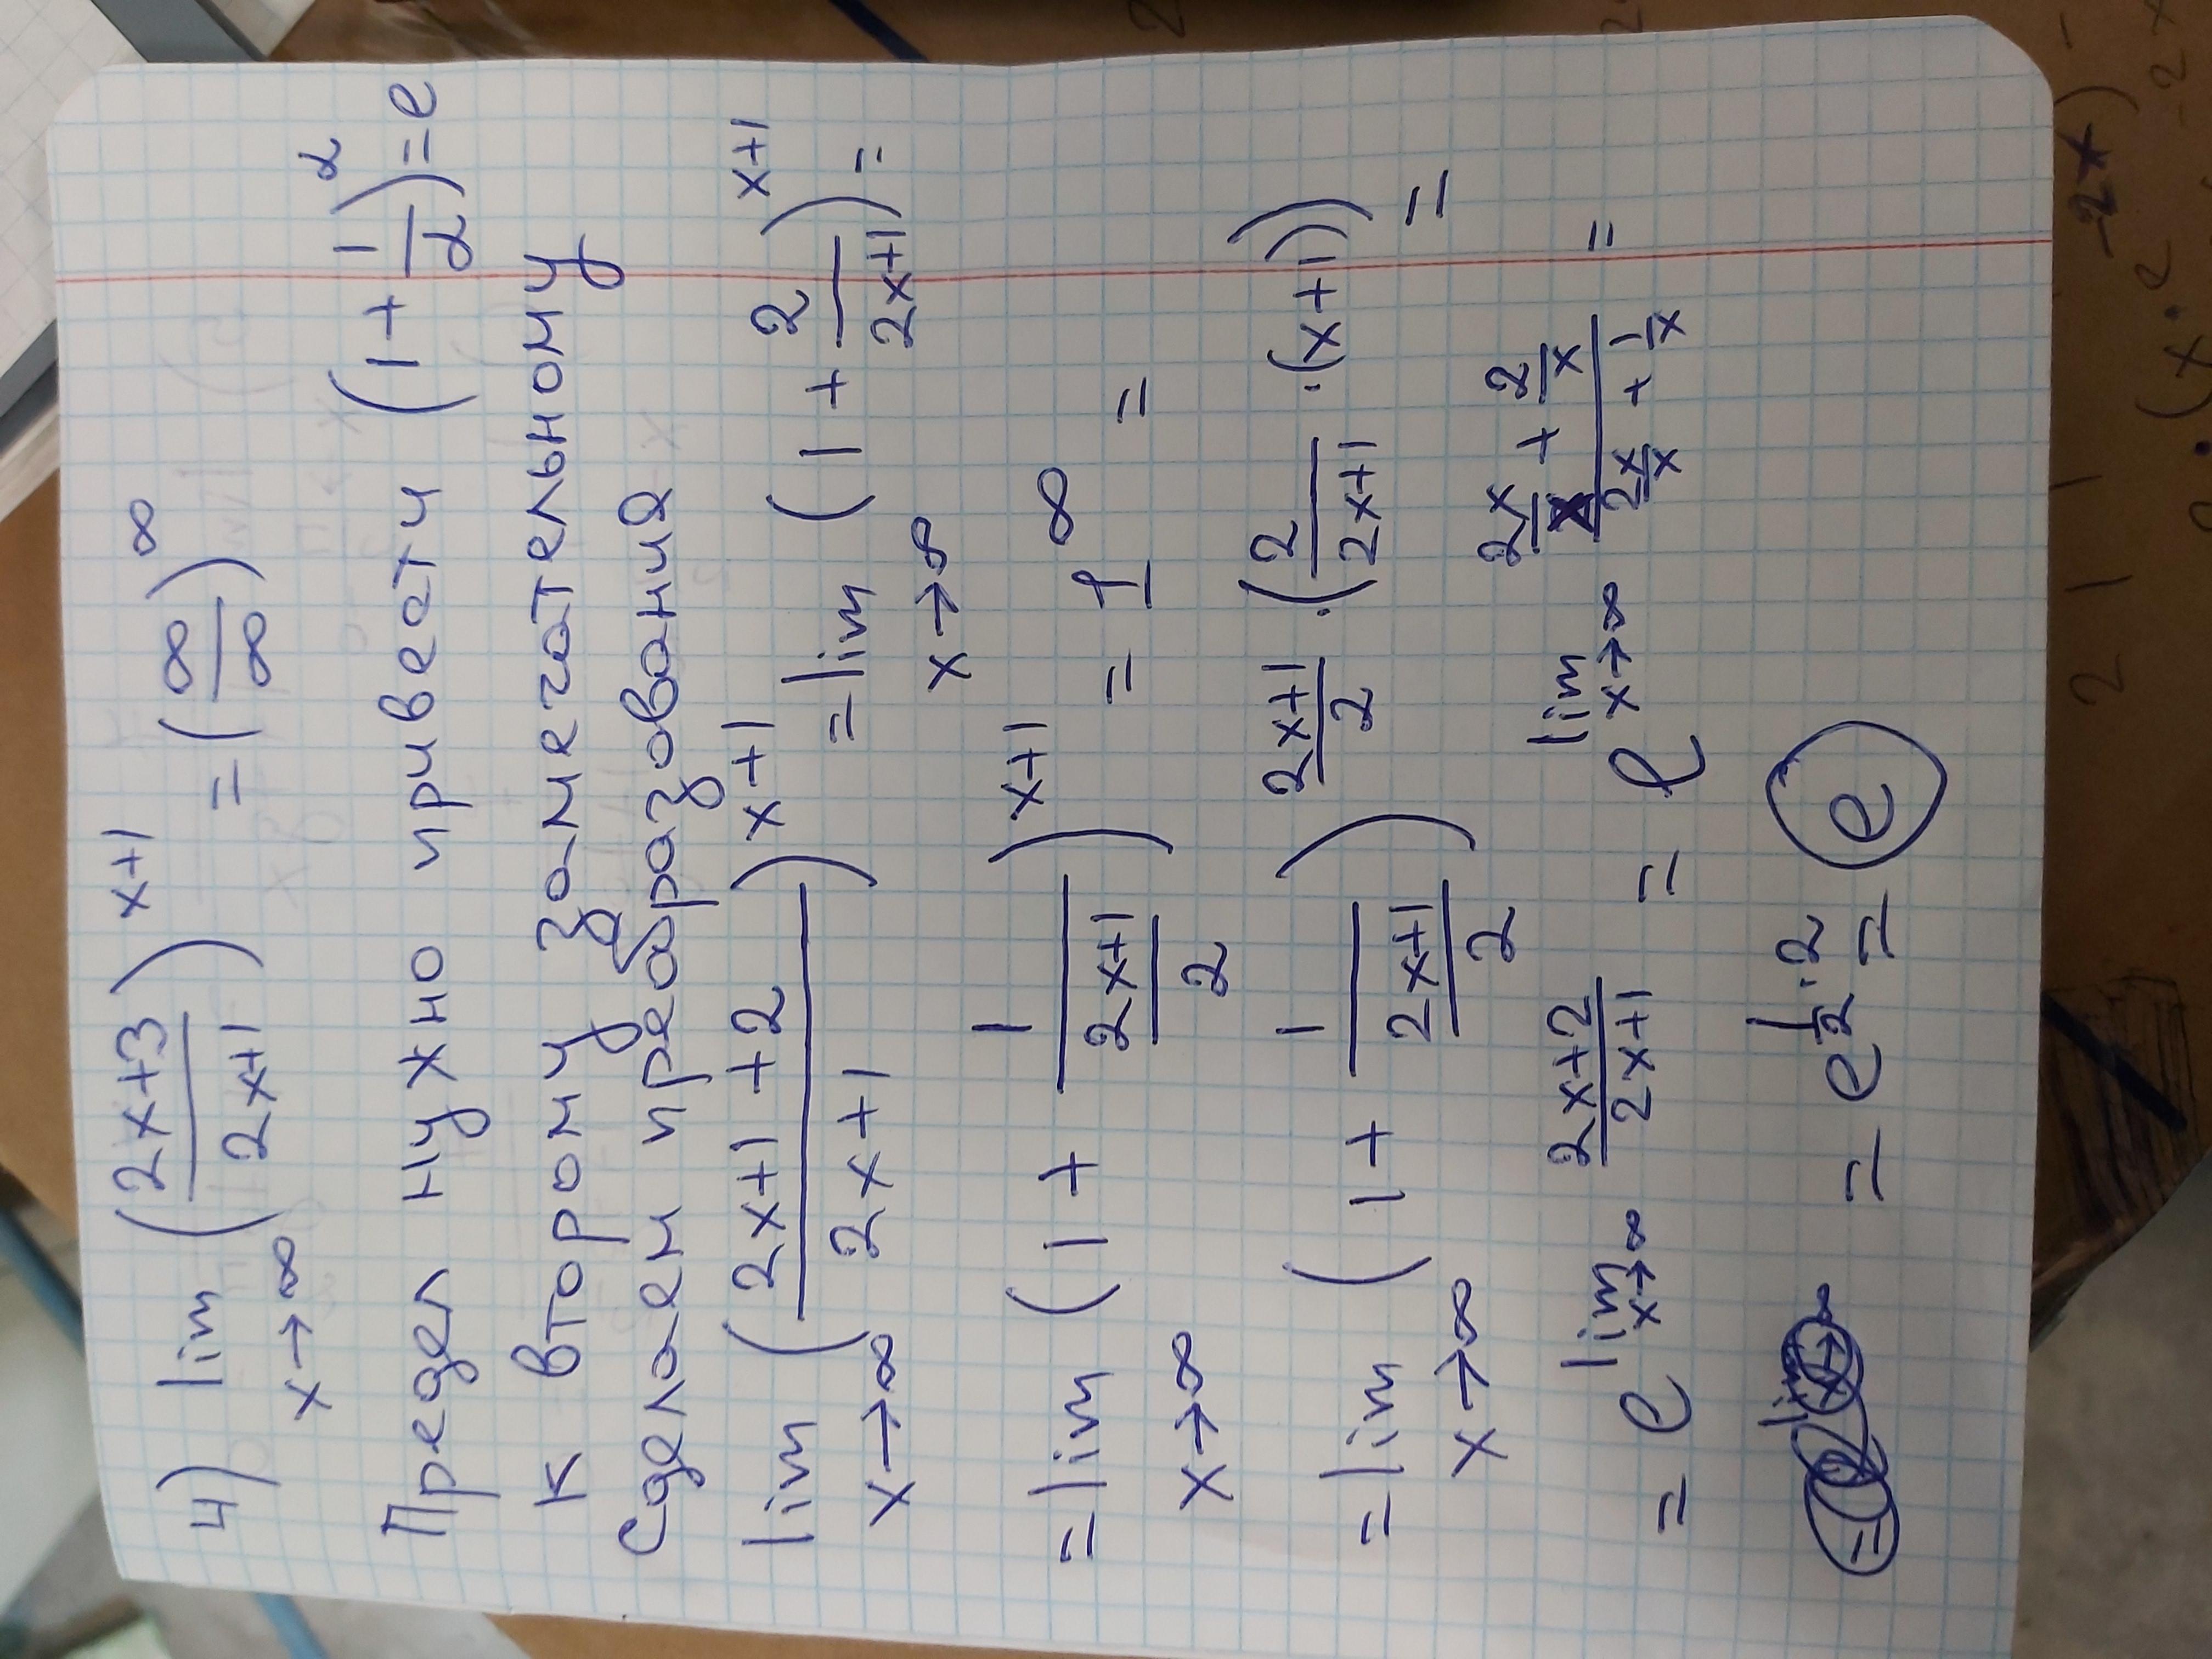 4) lim x→∞ ((2x+3)/(2x+1))^(x+1) = (∞/∞)^∞
Предел нужно привести (1 + 1/α)^α = e
к второму замечательному
Сделаем преобразования
lim x→∞ ((2x+1+2)/(2x+1))^(x+1) = lim x→∞ (1 + 2/(2x+1))^(x+1) =
= lim x→∞ (1 + 1/((2x+1)/2))^(x+1) = 1^∞ =
= lim x→∞ (1 + 1/((2x+1)/2))^((2x+1)/2 · (2/(2x+1) · (x+1))) =
= e^(lim x→∞ (2x+2)/(2x+1)) = e^(lim x→∞ (2x/x + 2/x)/(2x/x + 1/x)) =
= e^(1/2 · 2) = e